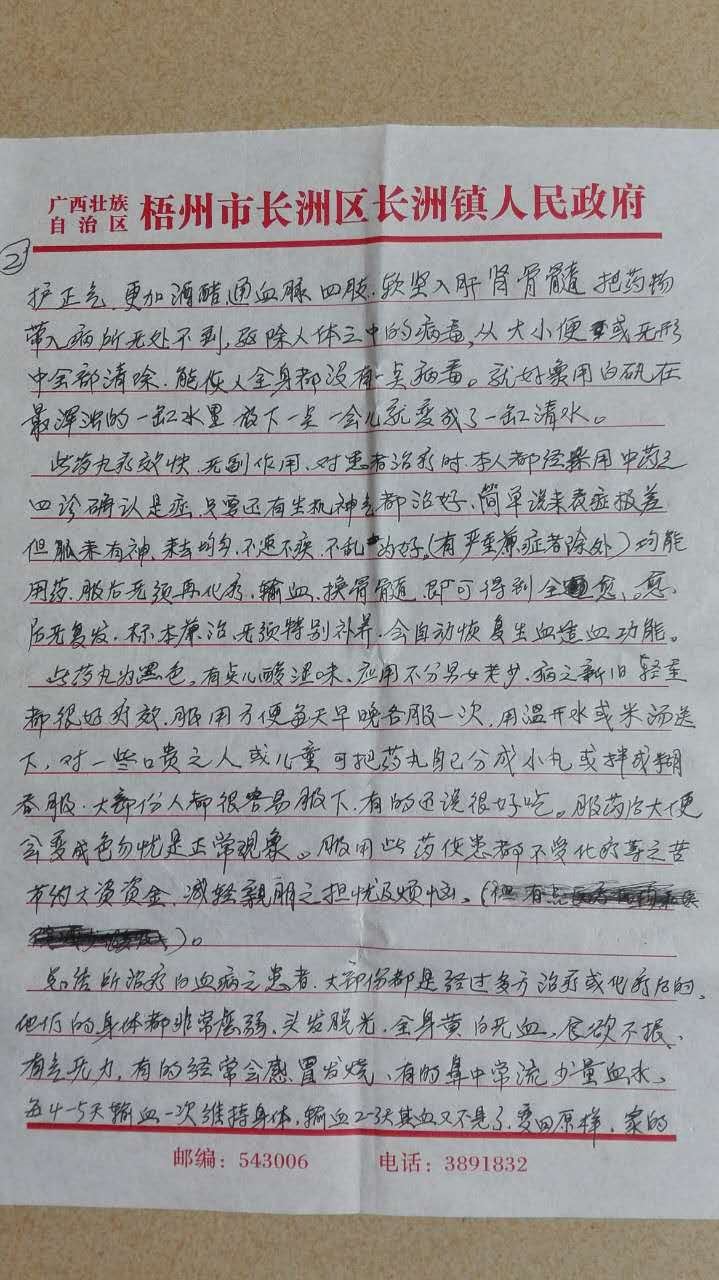 广西壮族
自治区
梧州市长洲区长洲镇人民政府
②
护正气,更加酒醋通血脉四肢,软坚入肝肾骨髓,把药物
带入病所无处不到,驱除人体三中的病毒,从大小便或无形
中全部清除,能使人全身都没有一点病毒。就好象用白矾在
最浑浊的一缸水里放下一点一会儿就变成了一缸清水。
此药丸疗效快,无副作用,对患者治疗时,本人都经采用中药之
四诊确认是症,只要还有生机神气都治好,简单说来表症极差
但脉来有神,来去均匀,不迟不疾,不乱为好,(有严重兼症者除外)均能
用药,服后无须再化疗,输血,换骨髓,即可得到全愈,愈
后无复发,标本兼治,无须特别补养,会自动恢复生血造血功能。
此药丸为黑色。有点儿酸涩味,应用不分男女老少,病之新旧轻重
都很好疗效,服用方便每天早晚各服一次,用温开水或米汤送
下,对一些口贵之人或儿童可把药丸自己分成小丸或拌成糊
吞服,大部份人都很容易服下,有的还说很好吃。服药后大便
会变成色勿忧是正常现象。服用此药使患者都不受化疗等之苦
节约大资资金,减轻亲朋之担忧及烦恼。(但有点
)。
总结所治疗白血病之患者,大部份都是经过多方治疗或化疗后的,
他们的身体都非常虚弱,头发脱光,全身黄白无血,食欲不振,
有气无力,有的经常会感冒发烧,有的鼻中常流少量血水,
每4-5天输血一次维持身体,输血2-3天其血又不见了,变回原样,家的
邮编:543006
电话:3891832